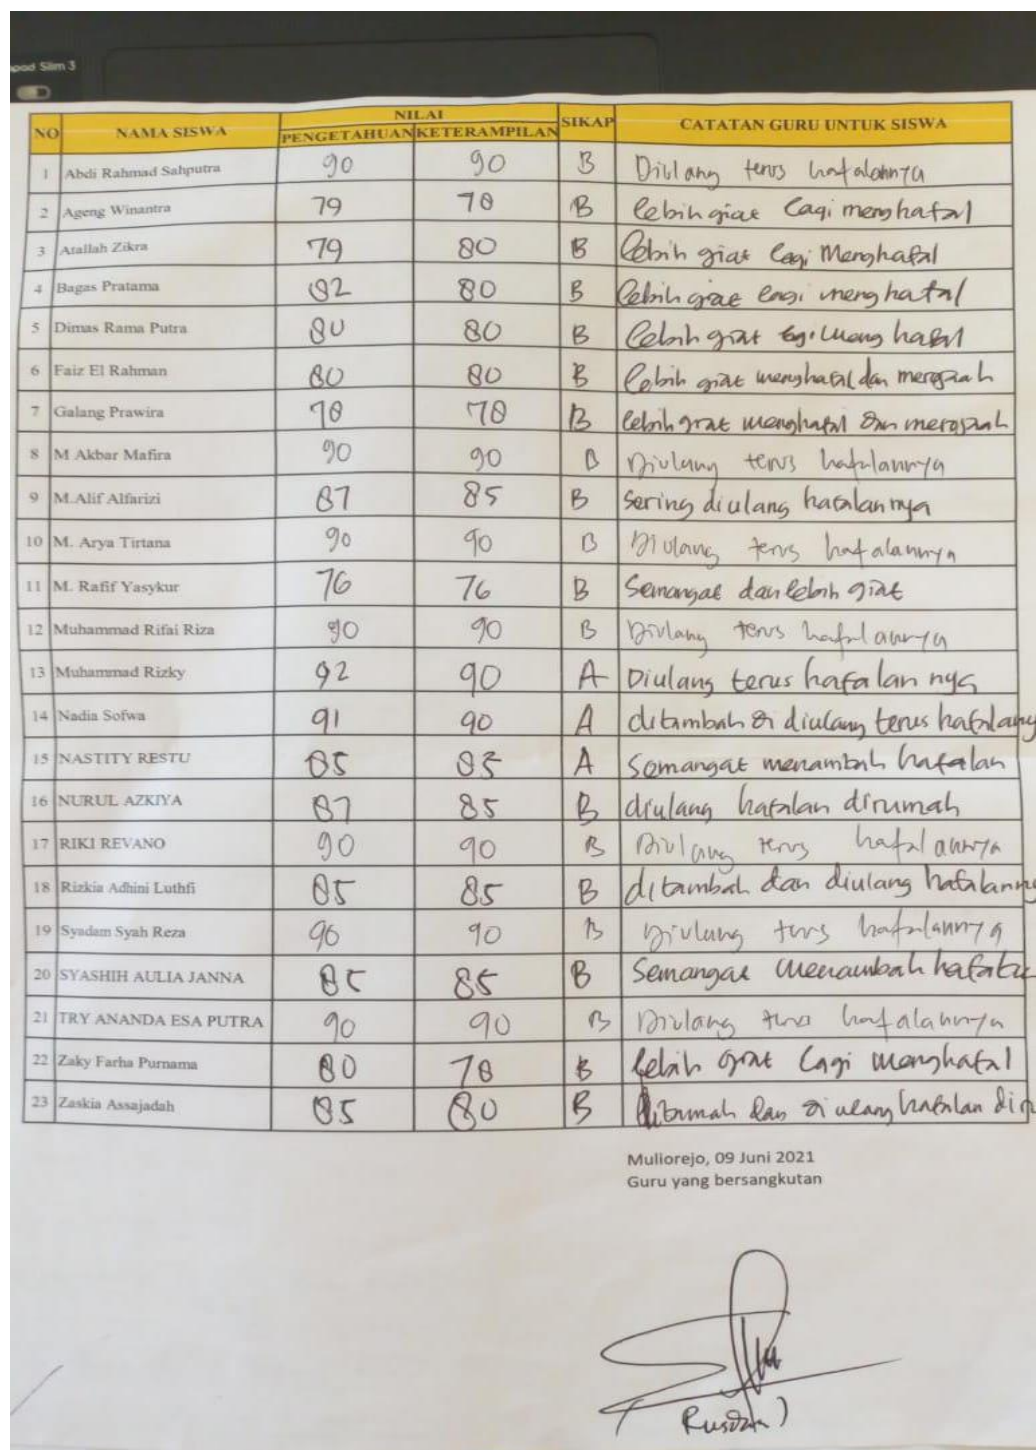 Slim 3
NO NAMA SISWA NILAI SIKAP CATATAN GURU UNTUK SISWA
PENGETAHUAN KETERAMPILAN
1 Abdi Rahmad Sahputra 90 90 B Diulang terus hafalannya
2 Ageng Winantra 79 78 B lebih giat lagi menghafal
3 Atallah Zikra 79 80 B Lebih giat lagi Menghafal
4 Bagas Pratama 82 80 B Lebih giat lagi menghafal
5 Dimas Rama Putra 80 80 B Lebih giat lagi menghafal
6 Faiz El Rahman 80 80 B Lebih giat menghafal dan
7 Galang Prawira 78 78 B lebih giat menghafal dan
8 M Akbar Mafira 90 90 B Diulang terus hafalannya
9 M.Alif Alfarizi 87 85 B Sering diulang hafalannya
10 M. Arya Tirtana 90 90 B Diulang terus hafalannya
11 M. Rafif Yasykur 76 76 B Semangat dan lebih giat
12 Muhammad Rifai Riza 90 90 B Diulang terus hafalannya
13 Muhammad Rizky 92 90 A Diulang terus hafalan nya
14 Nadia Sofwa 91 90 A ditambah & diulang terus hafalany
15 NASTITY RESTU 85 85 A Semangat menambah hafalan
16 NURUL AZKIYA 87 85 B diulang hafalan dirumah
17 RIKI REVANO 90 90 B Diulang terus hafalannya
18 Rizkia Adhini Luthfi 85 85 B ditambah dan diulang hafalanny
19 Syadam Syah Reza 90 90 B Diulang terus hafalannya
20 SYASHIH AULIA JANNA 85 85 B Semangat menambah
21 TRY ANANDA ESA PUTRA 90 90 B Diulang terus hafalannya
22 Zaky Farha Purnama 80 78 B Lebih giat lagi menghafal
23 Zaskia Assajadah 85 80 B dan diulang hafalan
Muliorejo, 09 Juni 2021
Guru yang bersangkutan